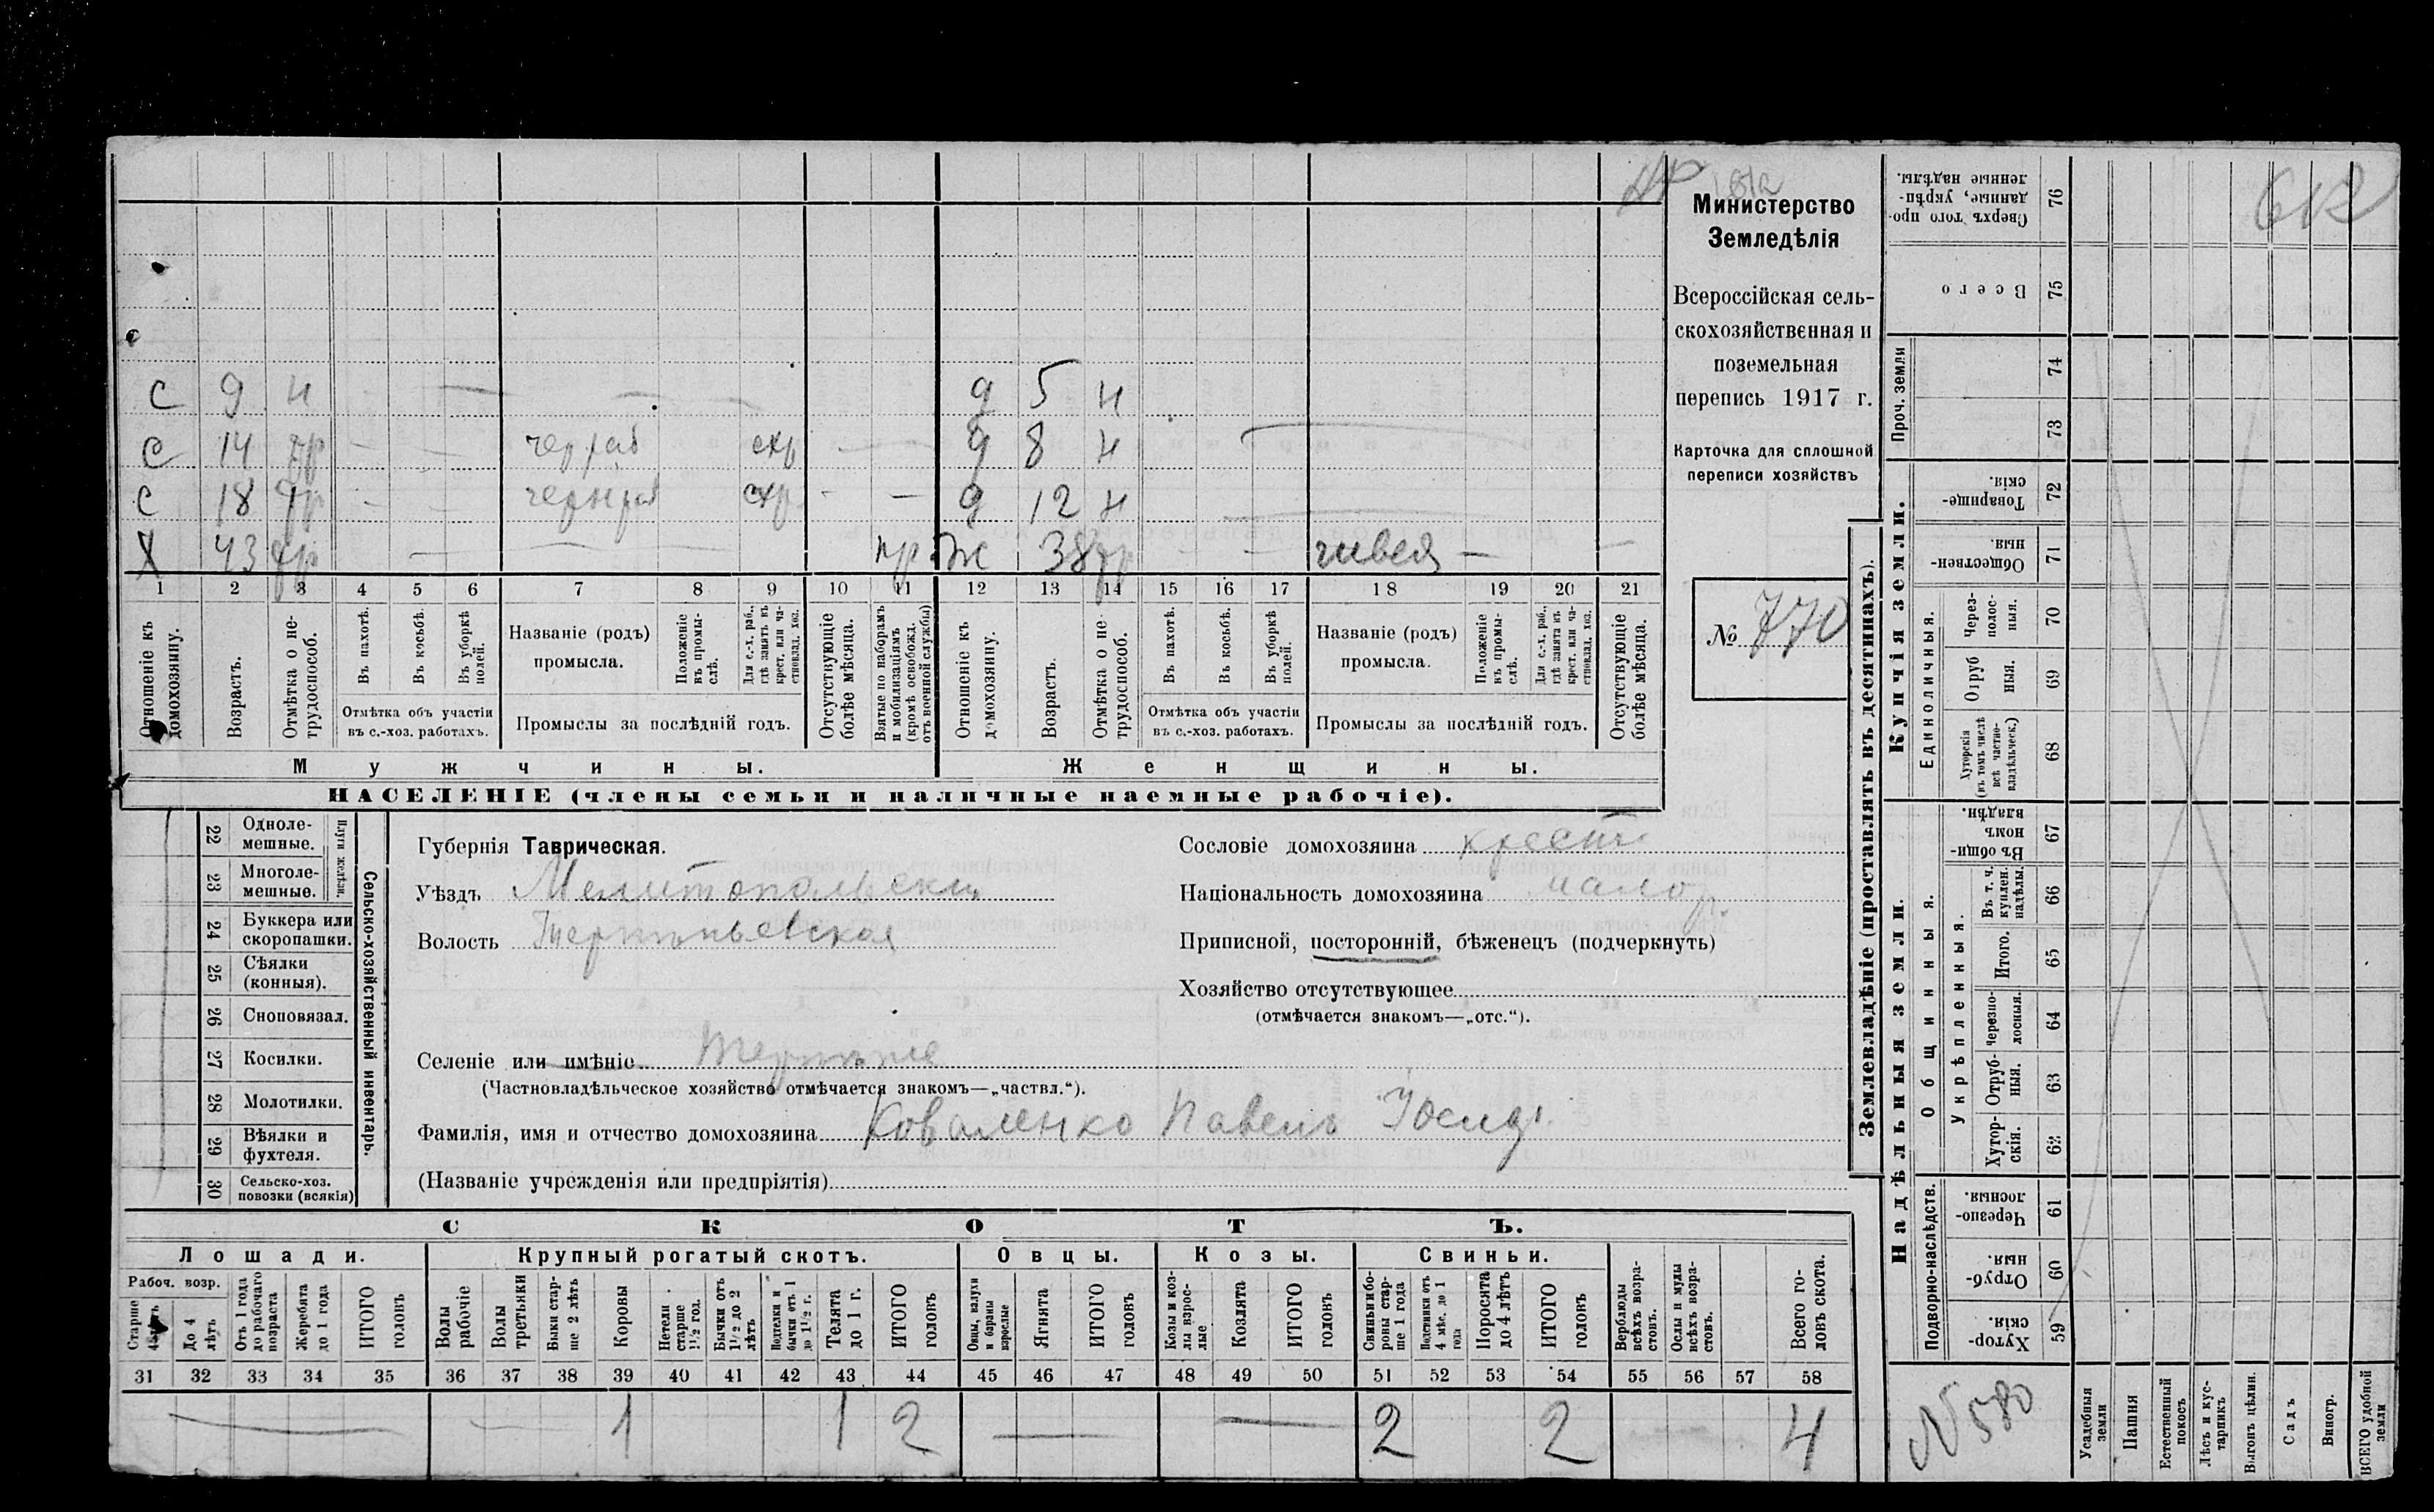 612
Министерство
Земледѣлія
Всероссійская сель-
скохозяйственная и
поземельная
перепись 1917 г.
Карточка для сплошной
переписи хозяйствъ
№ 770
С 9 н — — д 5 н
С 14 др — — чер раб схр — д 8 н —
С 18 др — — чернраб схр - — д 12 н —
Х 43 др — — — пр. Ж 38 др — — швея — —
1 2 3 4 5 6 7 8 9 10 11 12 13 14 15 16 17 18 19 20 21
Отношеніе къ домохозяину.
Возрастъ.
Отмѣтка о не-трудоспособ.
Въ пахотѣ.
Въ косьбѣ.
Въ уборкѣ полей.
Отмѣтка объ участіи
въ с.-хоз. работахъ.
Названіе (родъ)
промысла.
Положеніе въ промы-слѣ.
Для с.-х. раб., гдѣ занятъ въ крест. или ча-стновлад. хоз.
Промыслы за послѣдній годъ.
Отсутствующіе болѣе мѣсяца.
Взятые по наборамъ и мобилизаціямъ (кромѣ освобожд. отъ военной службы)
Отношеніе къ домохозяину.
Возрастъ.
Отмѣтка о не-трудоспособ.
Въ пахотѣ.
Въ косьбѣ.
Въ уборкѣ полей.
Отмѣтка объ участіи
въ с.-хоз. работахъ.
Названіе (родъ)
промысла.
Положеніе въ промы-слѣ.
Для с.-х. раб., гдѣ занята въ крест. или ча-стновлад. хоз.
Промыслы за послѣдній годъ.
Отсутствующіе болѣе мѣсяца.
Мужчины.
Женщины.
НАСЕЛЕНІЕ (члены семьи и наличные наемные рабочіе).
Сельско-хозяйственный инвентарь.
Плуги желѣзн.
22 Одноле-мешные.
23 Многоле-мешные.
24 Буккера или скоропашки.
25 Сѣялки (конныя).
26 Сноповязал.
27 Косилки.
28 Молотилки.
29 Вѣялки и фухтеля.
30 Сельско-хоз. повозки (всякія)
Губернія Таврическая.
Уѣздъ Мелитопольскій
Волость Терпѣньевская
Селеніе или имѣніе Терпѣніе
(Частновладѣльческое хозяйство отмѣчается знакомъ—„частвл.“).
Фамилія, имя и отчество домохозяина Коваленко Павелъ Іосиф.
(Названіе учрежденія или предпріятія)
Сословіе домохозяина крест
Національность домохозяина малор.
Приписной, посторонній, бѣженецъ (подчеркнуть)
Хозяйство отсутствующее
(отмѣчается знакомъ—„отс.“).
СКОТЪ.
Лошади.
Крупный рогатый скотъ.
Овцы.
Козы.
Свиньи.
Рабоч. возр.
Старше 4 лѣтъ
До 4 лѣтъ
Отъ 1 года до рабочаго возраста
Жеребята до 1 года
ИТОГО головъ
Волы рабочіе
Волы третьяки
Быки стар-ше 2 лѣтъ
Коровы
Нетели старше 1½ год.
Бычки отъ 1½ до 2 лѣтъ
Подтелки и бычки отъ 1 до 1½ г.
Телята до 1 г.
ИТОГО головъ
Овцы, валухи и бараны взрослые
Ягнята
ИТОГО головъ
Козы и коз-лы взрос-лые
Козлята
ИТОГО головъ
Свиньи и бо-ровы стар-ше 1 года
Подсвинки отъ 4 мѣс. до 1 года
Поросята до 4 лѣтъ
ИТОГО головъ
Верблюды всѣхъ возра-стовъ.
Ослы и мулы всѣхъ возра-стовъ.
Всего го-ловъ скота.
31 32 33 34 35 36 37 38 39 40 41 42 43 44 45 46 47 48 49 50 51 52 53 54 55 56 57 58
— — 1 1 2 — — 2 2 4
Землевладѣніе (проставлять въ десятинахъ).
Надѣльныя земли.
Купчія земли.
Проч. земли
Подворно-наслѣдств.
Общинныя.
Укрѣпленныя.
Единоличныя.
Сверхъ того про-данные, укрѣп-ленные надѣлы. 76
Всего 75
74
73
Товарище-скія. 72
Обществен-ныя. 71
Через-полос-ныя. 70
Отруб ныя. 69
Хуторскія (въ томъ числѣ всѣ частно-владѣльческ.) 68
Въ общин-номъ владѣн. 67
Въ т. ч. куплен. надѣлы. 66
Итого. 65
Черезпо-лосныя. 64
Отруб-ныя. 63
Хутор-скія. 62
Черезпо-лосныя. 61
Отруб-ныя. 60
Хутор-скія. 59
N 580
Усадебныя земли
Пашня
Естественный покосъ
Лѣсъ и кус-тарникъ
Выгонъ цѣлин.
Садъ
Виногр.
ВСЕГО удобной земли